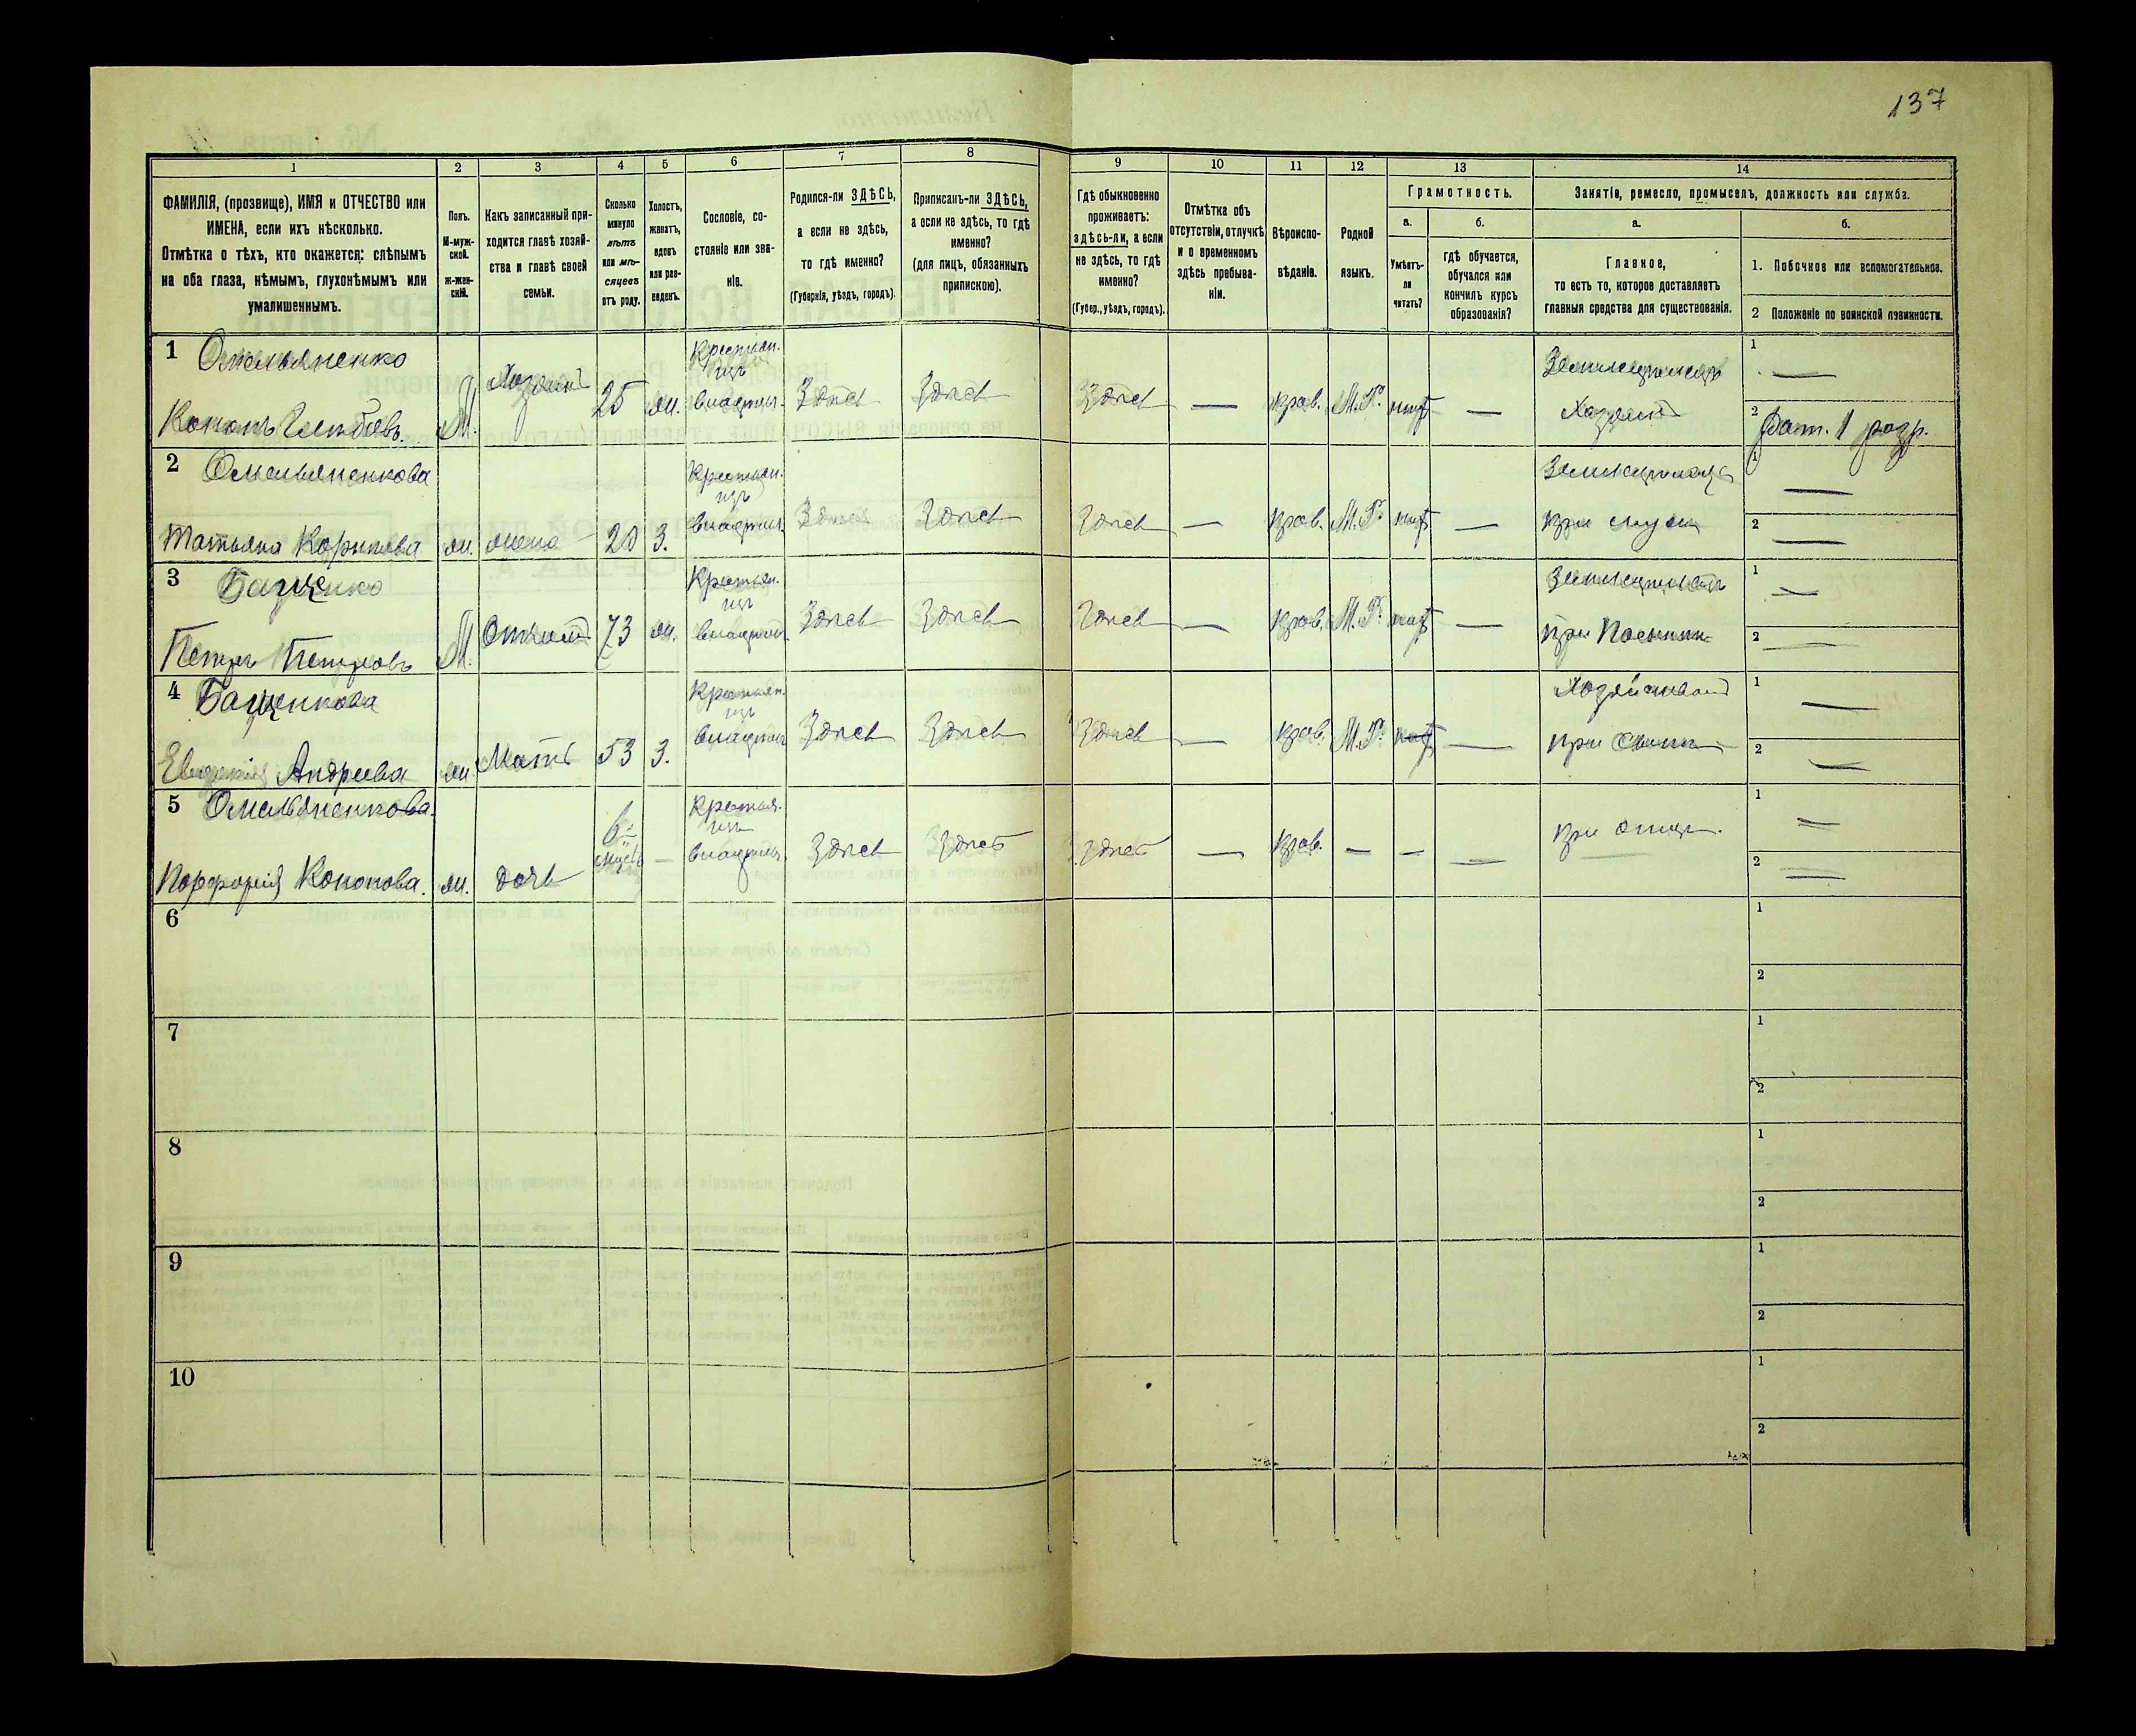 137
1
2
3
4
5
6
7
8
9
10
11
12
13
14
ФАМИЛІЯ, (прозвище), ИМЯ и ОТЧЕСТВО или
ИМЕНА, если ихъ нѣсколько.
Отмѣтка о тѣхъ, кто окажется: слѣпымъ
на оба глаза, нѣмымъ, глухонѣмымъ или
умалишеннымъ.
Полъ.
М-муж-
ской.
Ж-жен-
скій.
Какъ записанный при-
ходится главѣ хозяй-
ства и главѣ своей
семьи.
Сколько
минуло
лѣтъ
или мѣ-
сяцевъ
отъ роду.
Холостъ,
женатъ,
вдовъ
или раз-
веденъ.
Сословіе, со-
стояніе или зва-
ніе.
Родился-ли ЗДѢСЬ,
а если не здѣсь,
то гдѣ именно?
(Губернія, уѣздъ, городъ).
Приписанъ-ли ЗДѢСЬ,
а если не здѣсь, то гдѣ
именно?
(для лицъ, обязанныхъ
припискою).
Гдѣ обыкновенно
проживаетъ:
здѣсь-ли, а если
не здѣсь, то гдѣ
именно?
(Губер., уѣздъ, городъ).
Отмѣтка объ
отсутствіи, отлучкѣ
и о временномъ
здѣсь пребыва-
ніи.
Вѣроиспо-
вѣданіе.
Родной
языкъ.
Грамотность.
а.
Умѣетъ-
ли
читать?
б.
гдѣ обучается,
обучался или
кончилъ курсъ
образованія?
Занятіе, ремесло, промыселъ, должность или служба.
а.
Главное,
то есть то, которое доставляетъ
главныя средства для существованія.
б.
1. Побочное или вспомогательное.
2 Положеніе по воинской повинности.
1 Омельяненко
Кононъ Глѣбовъ. М. Хозяинъ 25 ж. Крестьян. изъ владѣль. Здѣсь Здѣсь Здѣсь — прав. М.Р. нѣтъ — Земледѣлецъ Хозяинъ
1 —
2 Рат. 1 разр.
2 Омельяненкова
Татьяна Карпова ж. жена 20 З. Крестьян. изъ владѣль. Здѣсь Здѣсь Здѣсь — прав. М.Р. нѣтъ — при мужѣ
1 —
2 —
3 Бащенко
Петръ Петровъ М. Отчимъ 73 ж. Крестьян. изъ владѣль. Здѣсь Здѣсь Здѣсь — прав. М.Р. нѣтъ —
1 —
2 —
4 Бащенкова
Андреева ж. Мать 53 З. Крестьян. изъ владѣль. Здѣсь Здѣсь Здѣсь — прав. М.Р. нѣтъ — при сынѣ
1 —
2 —
5 Омельяненкова
Кононова. ж. дочь 6 — Крестьян. изъ владѣль. Здѣсь Здѣсь Здѣсь — прав. — — — при отцѣ.
1 —
2 —
6
1
2
7
1
2
8
1
2
9
1
2
10
1
2